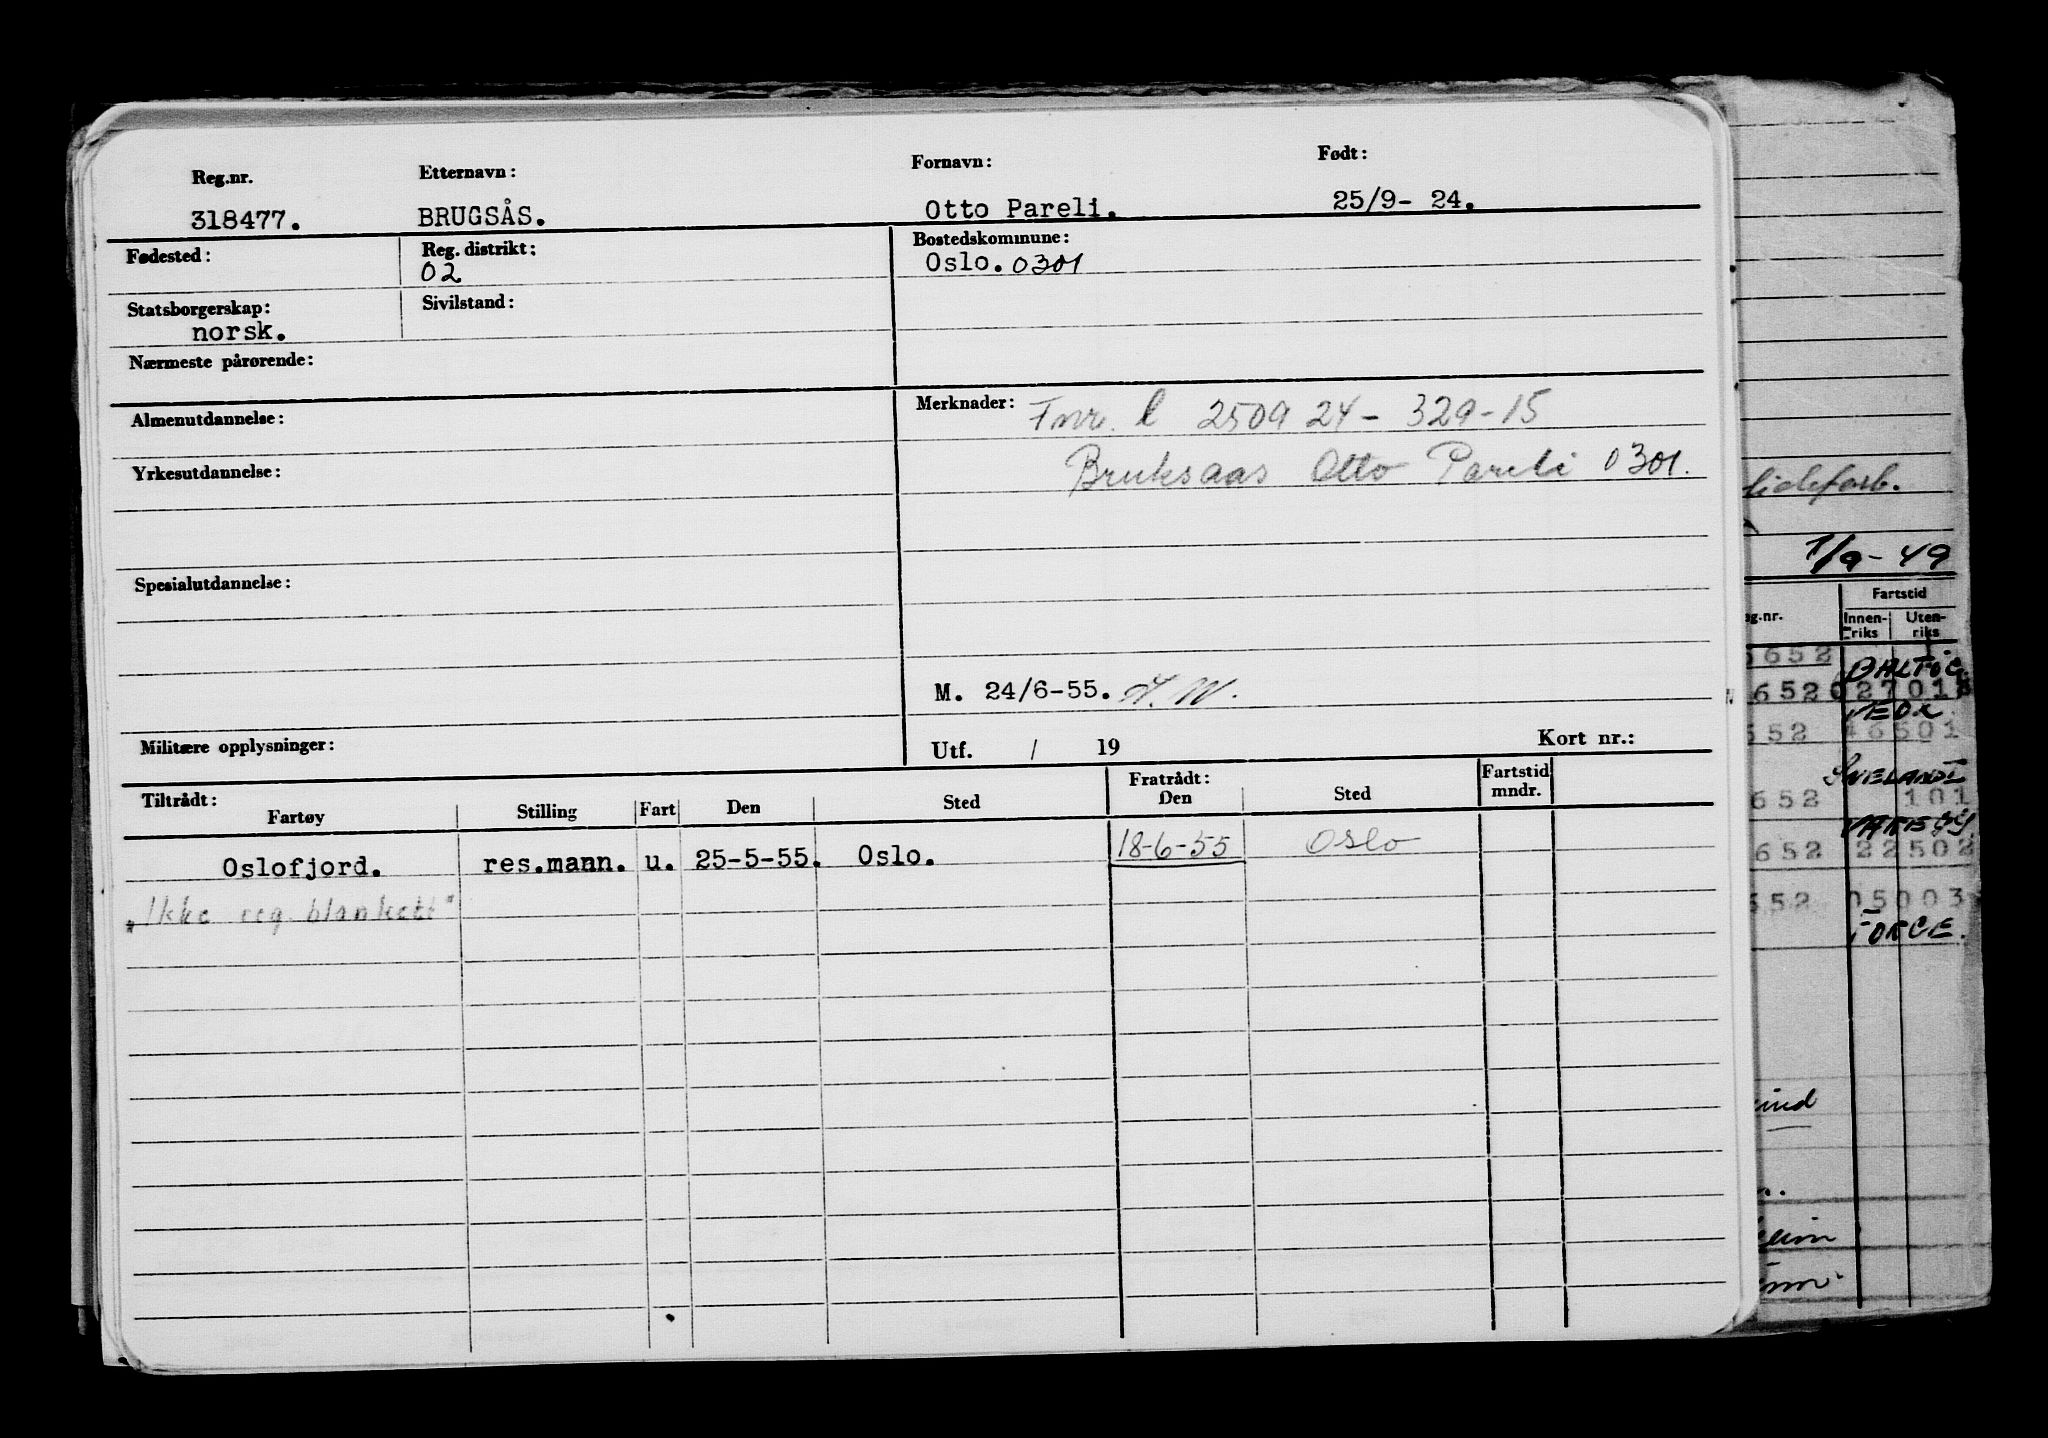 Reg.nr. Etternavn: Fornavn: Født:
318477. BRUGSÅS. Otto Pareli. 25/9- 24.
Fødested: Reg. distrikt: Bostedskommune:
02 Oslo. 0301
Statsborgerskap: Sivilstand:
norsk.
Nærmeste pårørende:
Almenutdannelse: Merknader: Fnr. l 250924-329-15
Yrkesutdannelse: Bruksaas Otto Pareli 0301.
Spesialutdannelse:
M. 24/6-55. H.W.
Militære opplysninger: Utf. / 19 Kort nr.:
Tiltrådt: Fratrådt: Fartstid
Fartøy Stilling Fart Den Sted Den Sted mndr.
Oslofjord. res.mann. u. 25-5-55. Oslo. 18-6-55 Oslo
"Ikke reg. blankett"
1/9-49
Fartstid
g.nr. Innen-riks Uten-riks
652 BALTIC
6520 2701
652 46501
652 101
652 22502
652 05003
FORCE.